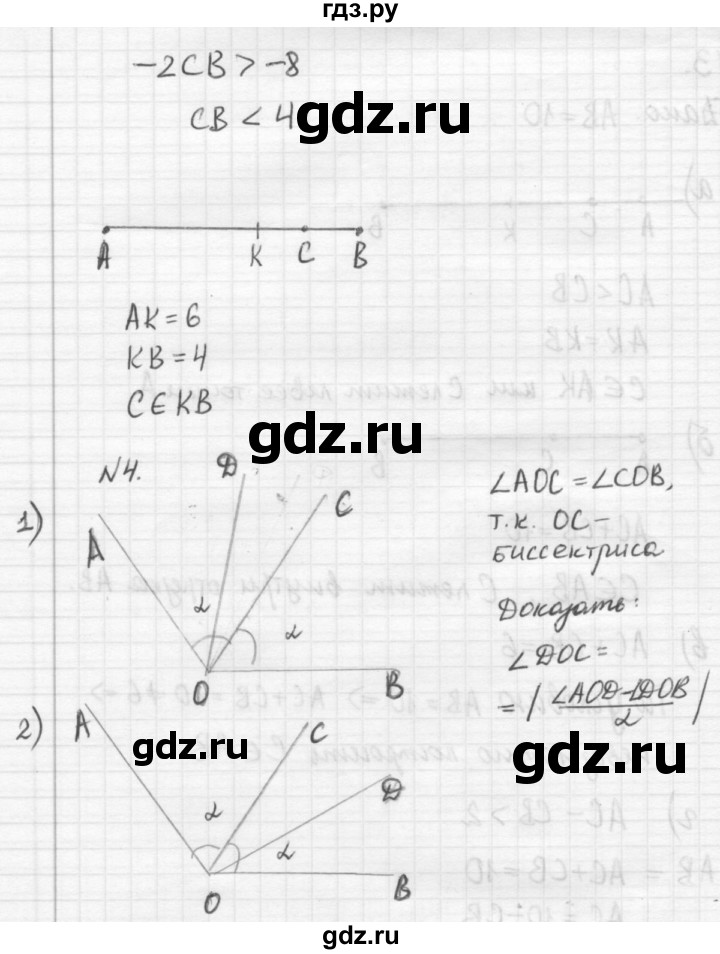 гдз.ру
-2CB > -8
CB < 4
gdz.ru
A K C B
AK = 6
KB = 4
C ∈ KB
gdz.ru
N4.
1)
A D C
α α
O B
∠AOC = ∠COB,
т.к. OC –
биссектриса
Доказать:
∠DOC =
= | (∠AOD - ∠DOB)/2 |
2)
A C D
α α
O B
gdz.ru
gdz.ru
gdz.ru